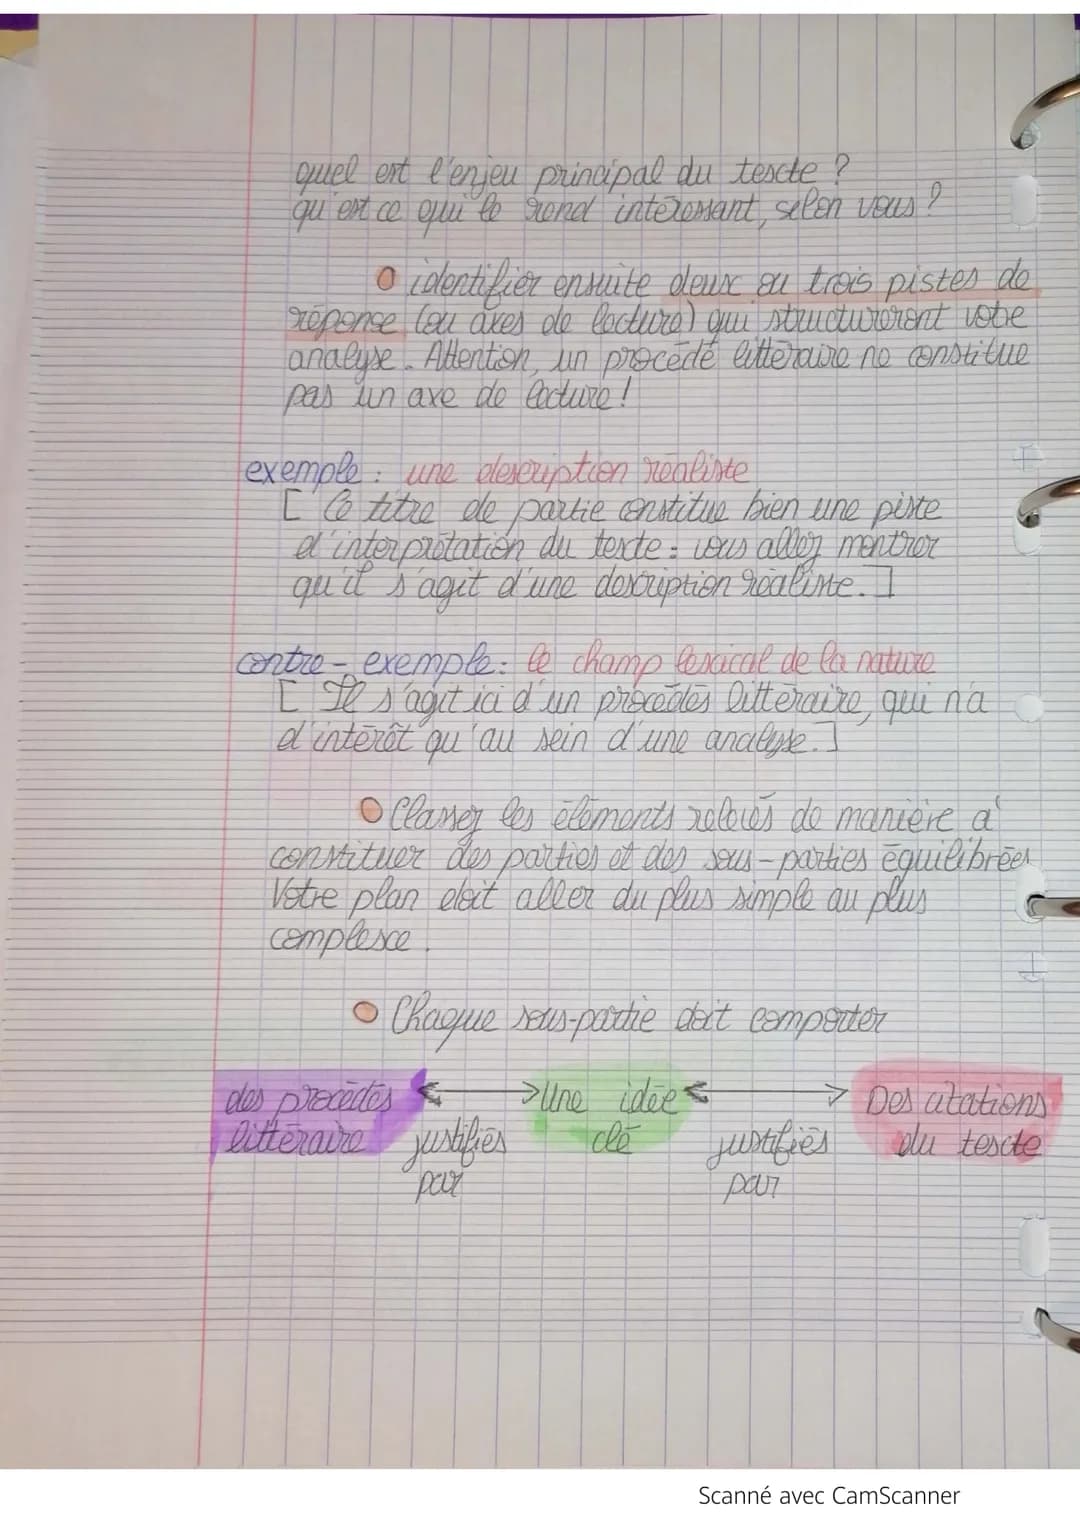 quel est l'enjeu principal du texte ?
qu'est ce qui le rend intéressant, selon vous ?
identifier ensuite deux ou trois pistes de
réponse (ou axes de lecture) qui structureront votre
analyse. Attention, un procédé littéraire ne constitue
pas un axe de lecture !
exemple : une description réaliste
[ Ce titre de partie constitue bien une piste
d'interprétation du texte : vous allez montrer
qu'il s'agit d'une description réaliste. ]
contre-exemple : le champ lexical de la nature
[ Il s'agit ici d'un procédés littéraire, qui n'a
d'intérêt qu'au sein d'une analyse. ]
Classez les éléments relevés de manière à
constituer des parties et des sous-parties équilibrées
Votre plan doit aller du plus simple au plus
complexe.
Chaque sous-partie doit comporter
des procédés <-> Une idée <-> Des citations
littéraire justifiés clé justifiés du texte
par par
Scanné avec CamScanner